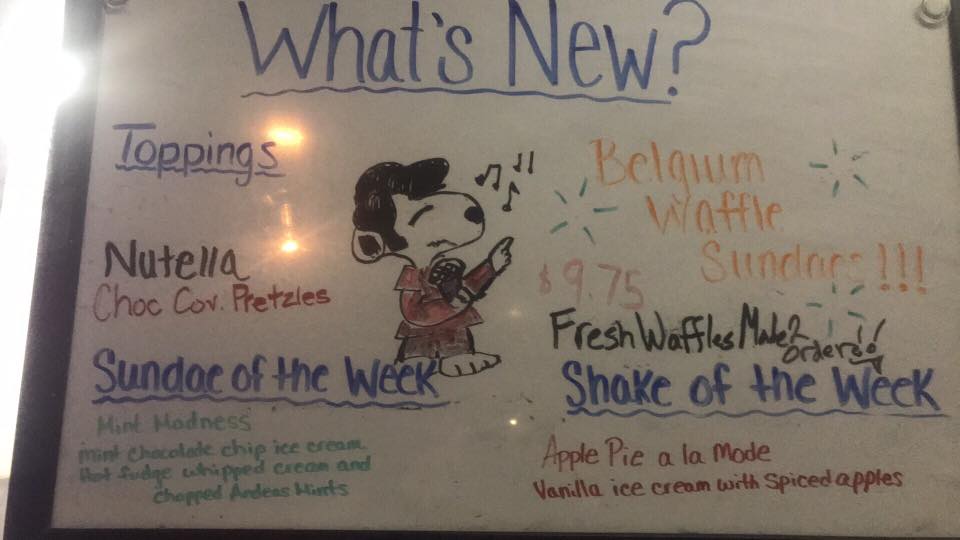 What's New?
Toppings
Nutella
Choc Cov. Pretzles
Belgium
Waffle
Sundaes!!!
$9.75
Fresh Waffles Made 2
order!!
Sundae of the Week
Mint Madness
mint chocolate chip ice cream
Hot fudge whipped cream and
chopped Andeas Mints
Shake of the Week
Apple Pie a la Mode
Vanilla ice cream with Spiced apples